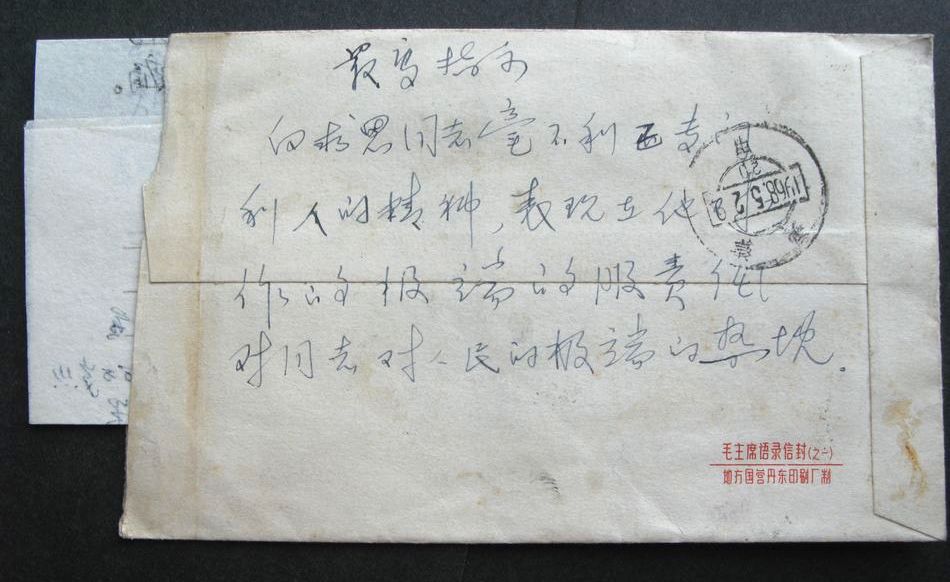 最高指示
白求恩同志毫不利己专门
利人的精神，表现在他
作的极端的服责任
对同志对人民的极端的热忱。
1968.5.2
20
毛主席语录信封(之一)
地方国营丹东印刷厂制